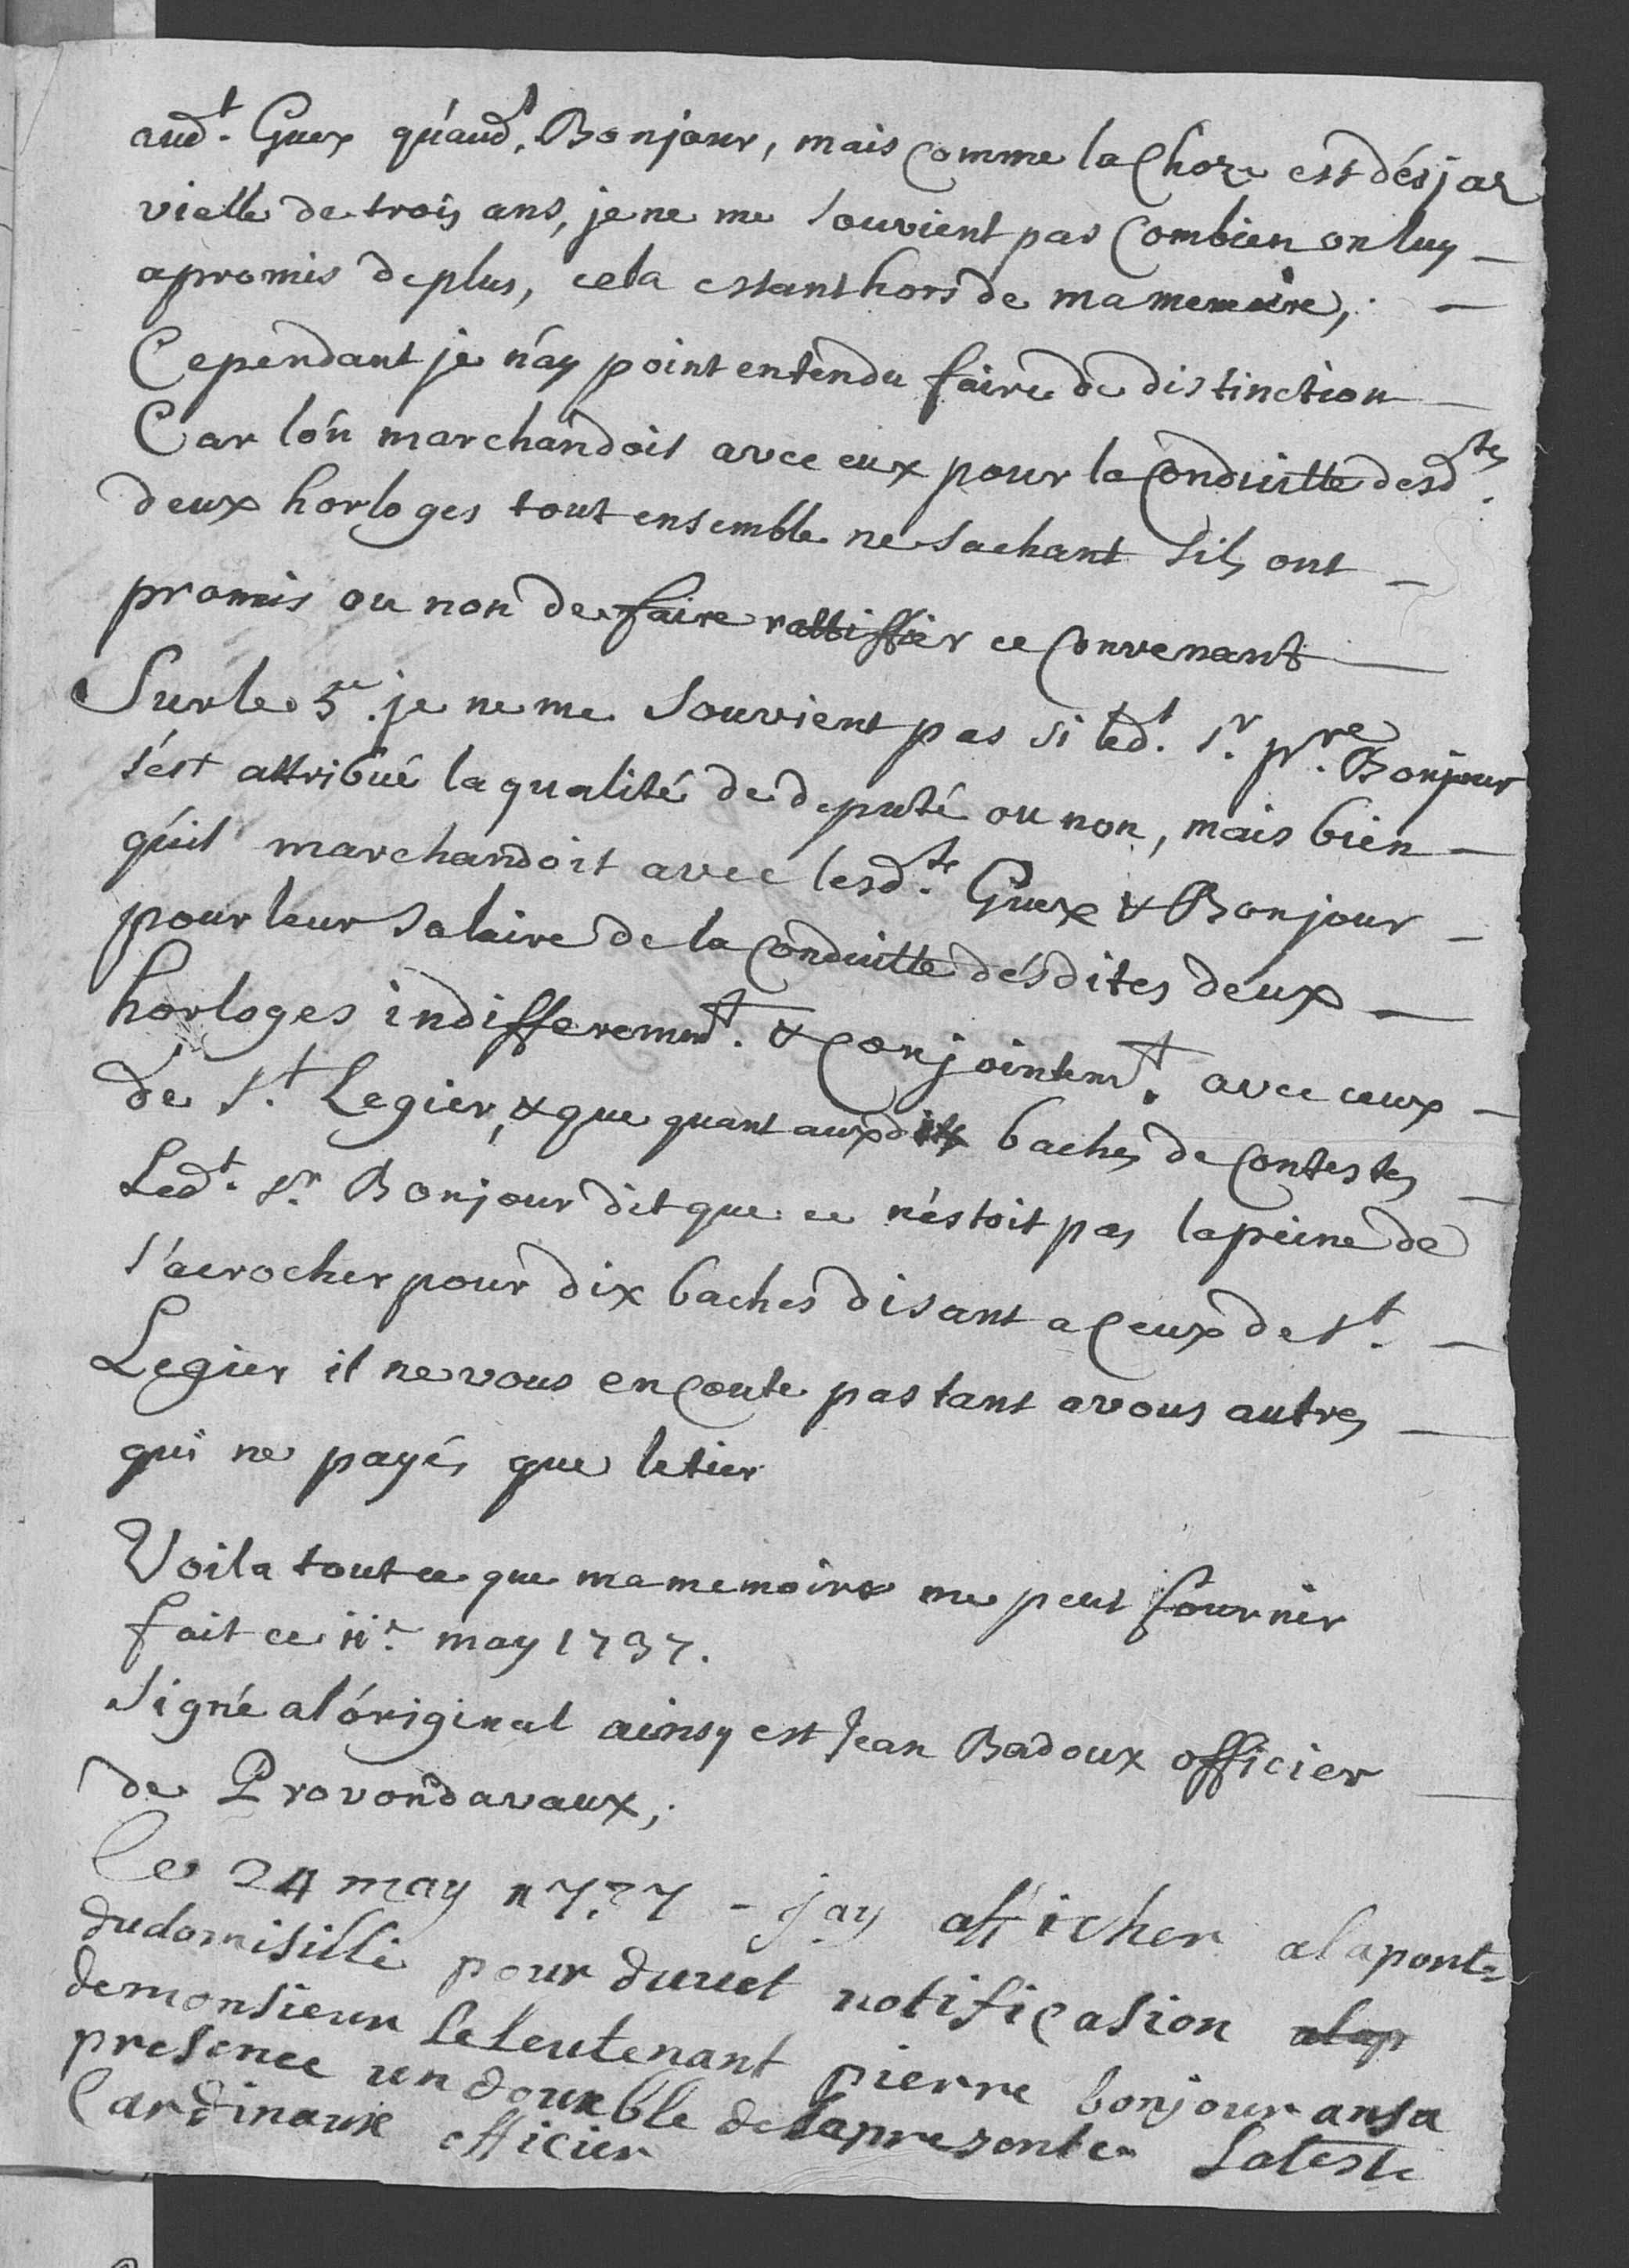 aud.t Guex qu'aud.t Bonjour, mais comme la choze est désja
vielle de trois ans, je ne me souvient pas combien on luy
a promis de plus, cela estant hors de ma memoire,
Cependant je n'ay point entendu faire de distinction
Car lon marchandoit avec eux pour la Conduitte desd.tes
deux horloges tout ensemble ne sachant sils ont
promis ou non de faire rattiffier ce Convenant
Sur le 5e. je ne me souvient pas si led.t Sr. prre. Bonjour
s'est attribué la qualité de deputé ou non, mais bien
qu'il marchandoit avec lesd.ts Guex & Bonjour
pour leur salaire de la Conduitte désdites deux
horloges indifferemmt. & Conjointemt. avec ceux
de St. Legier, & que quant aux dix baches de Contestes
Led.t Sr. Bonjour dit que ce n'éstoit pas la peine de
s'acrocher pour dix baches disant a Ceux de St.
Legier il ne vous en Coute pas tant a vous autres
qui ne payés que le tier
Voila tout ce que ma memoire me peut fournir
fait ce 11e. may 1737.
Signé a l'original ainsy est Jean Badoux officier
de Provondavaux,
le 24 may 1737 - jay afficher a la porte
du domisille pour duuet notificasion
de monsieur Le leutenant pierre bonjour an sa
presence un double de la prezente Lateste
Cardinaux officier